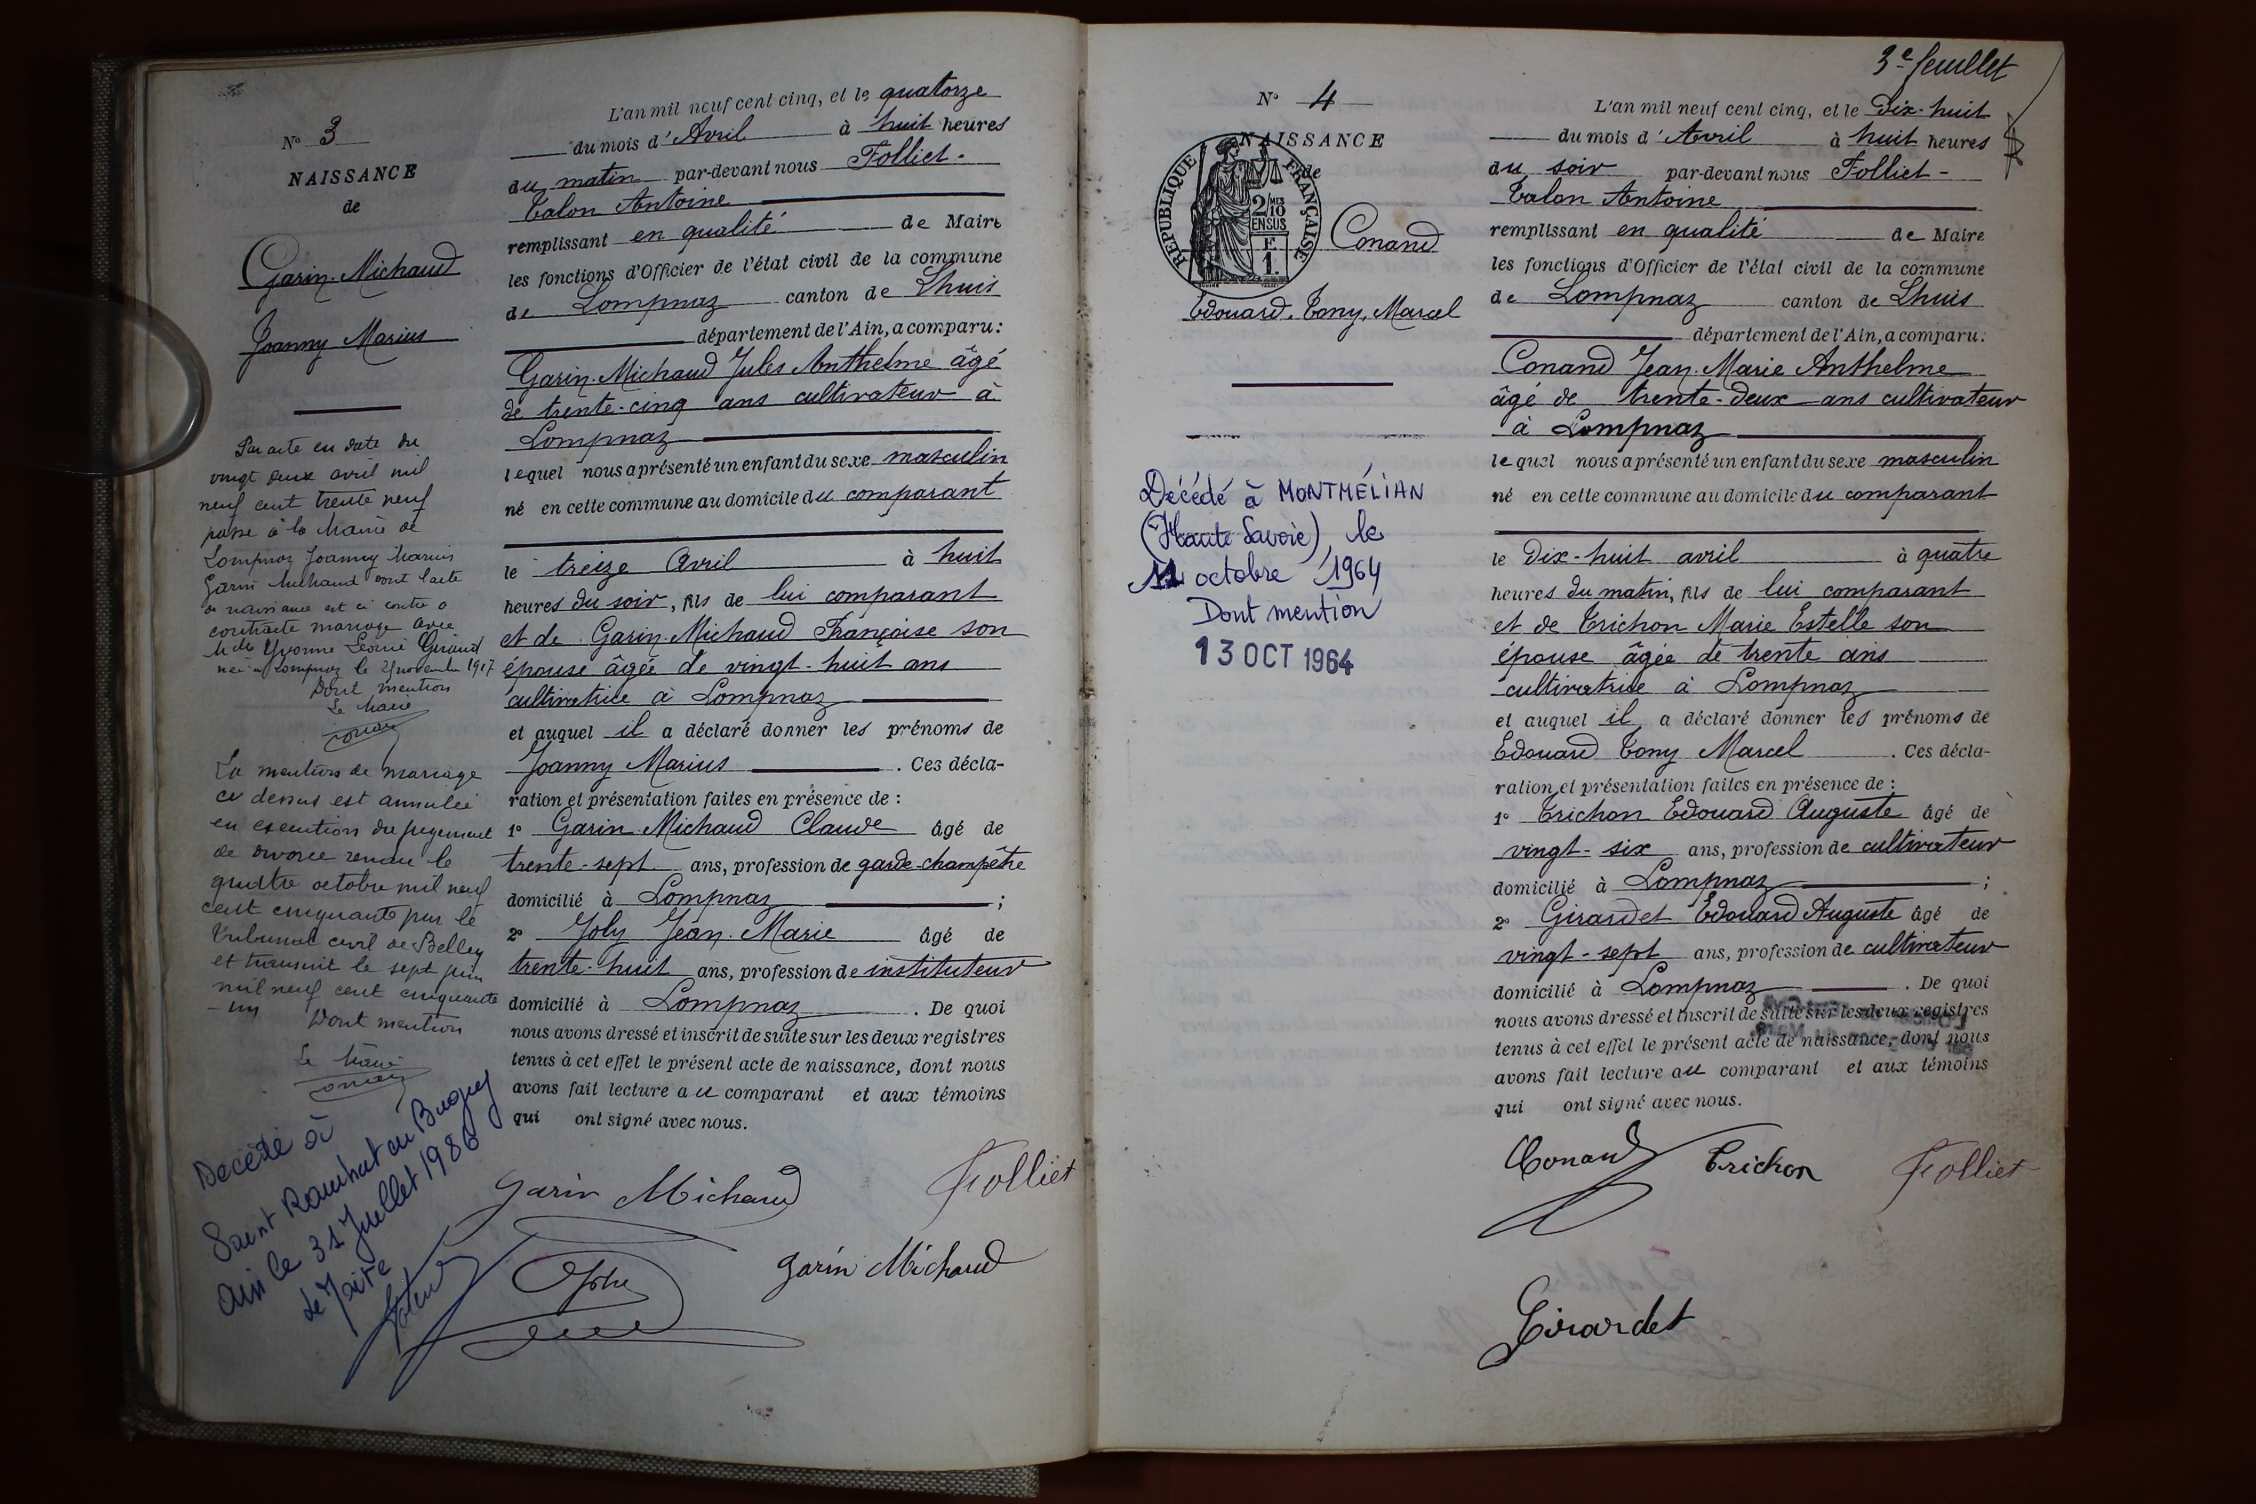 N° 3
NAISSANCE
de
Garin-Michaud
Joanny Marius
Par acte en date du
vingt deux avril mil
neuf cent trente neuf
passé à la Mairie de
Lompnaz Joanny Marius
Garin Michaud dont l'acte
de naissance est ci contre a
contracté mariage avec
Melle Yvonne Léonie Giraud
née à Lompnaz le 2 novembre 1917
Dont mention
Le Maire
La mention de mariage
ci dessus est annulée
en execution du jugement
de divorce rendu le
quatre octobre mil neuf
cent cinquante par le
Tribunal civil de Belley
et transcrit le sept juin
mil neuf cent cinquante
-un Dont mention
Le Maire
Décédé à
Saint Rambert en Bugey
Ain le 31 Juillet 1986
Le Maire
L'an mil neuf cent cinq, et le quatorze
du mois d'Avril à huit heures
du matin par-devant nous Folliet-
Talon Antoine
remplissant en qualité de Maire
les fonctions d'Officier de l'état civil de la commune
de Lompnaz canton de Lhuis
département de l'Ain, a comparu:
Garin-Michaud Jules Anthelme âgé
de trente-cinq ans cultivateur à
Lompnaz
lequel nous a présenté un enfant du sexe masculin
né en cette commune au domicile du comparant
le treize Avril à huit
heures du soir, fils de lui comparant
et de Garin-Michaud Françoise son
épouse âgée de vingt-huit ans
cultivatrice à Lompnaz
et auquel il a déclaré donner les prénoms de
Joanny Marius . Ces décla-
ration et présentation faites en présence de :
1° Garin-Michaud Claude âgé de
trente-sept ans, profession de garde-champêtre
domicilié à Lompnaz ;
2° Joly Jean-Marie âgé de
trente-huit ans, profession de instituteur
domicilié à Lompnaz . De quoi
nous avons dressé et inscrit de suite sur les deux registres
tenus à cet effet le présent acte de naissance, dont nous
avons fait lecture au comparant et aux témoins
qui ont signé avec nous.
Garin Michaud Folliet
Joly Garin Michaud
3e feuillet
N° 4
NAISSANCE
de
REPUBLIQUE FRANÇAISE
2/10 MES
EN SUS
F
1.
Conand
Edouard, Tony, Marcel
Décédé à MONTMÉLIAN
(Haute Savoie), le
11 octobre 1964
Dont mention
13 OCT 1964
L'an mil neuf cent cinq, et le Dix-huit
du mois d'Avril à huit heures
du soir par-devant nous Folliet-
Talon Antoine
remplissant en qualité de Maire
les fonctions d'Officier de l'état civil de la commune
de Lompnaz canton de Lhuis
département de l'Ain, a comparu:
Conand Jean-Marie Anthelme
âgé de trente-deux ans cultivateur
à Lompnaz
lequel nous a présenté un enfant du sexe masculin
né en cette commune au domicile du comparant
le Dix-huit avril à quatre
heures du matin, fils de lui comparant
et de Trichon Marie Estelle son
épouse âgée de trente ans
cultivatrice à Lompnaz
et auquel il a déclaré donner les prénoms de
Edouard Tony Marcel . Ces décla-
ration et présentation faites en présence de :
1° Trichon Edouard Auguste âgé de
vingt-six ans, profession de cultivateur
domicilié à Lompnaz ;
2° Girardet Edouard Auguste âgé de
vingt-sept ans, profession de cultivateur
domicilié à Lompnaz . De quoi
nous avons dressé et inscrit de suite sur les deux registres
tenus à cet effet le présent acte de naissance, dont nous
avons fait lecture au comparant et aux témoins
qui ont signé avec nous.
Conand Trichon Folliet
Girardet